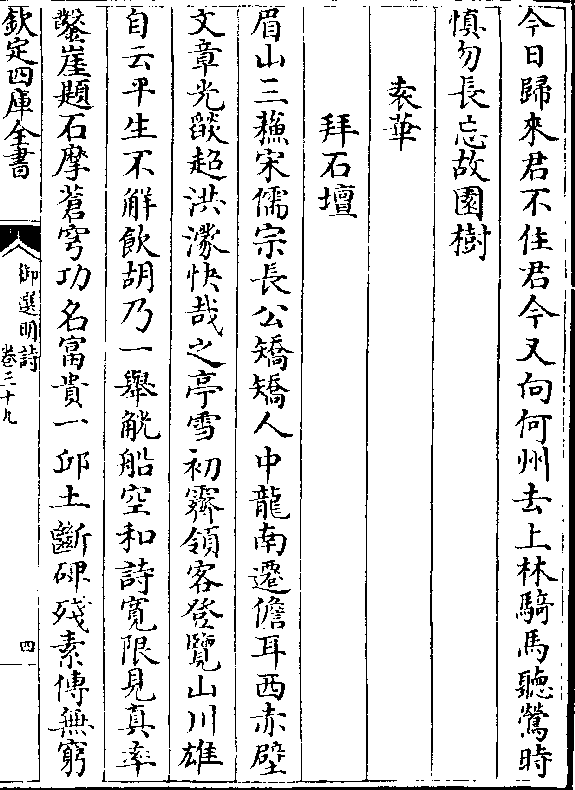 今日歸來君不住君今又向何州去上林騎馬聽鶯時
慎勿長忘故園樹
袁華
拜石壇
眉山三蘓宋儒宗長公矯矯人中龍南遷儋耳西赤壁
文章光燄超洪濛快哉之亭雪初霽領客登覽山川雄
自云平生不解飲胡乃一舉觥船空和詩寛限見真率
鑿崖題石摩蒼穹功名富貴一邱土斷碑殘素傳無窮
欽定四庫全書
御選明詩
卷三十九
四